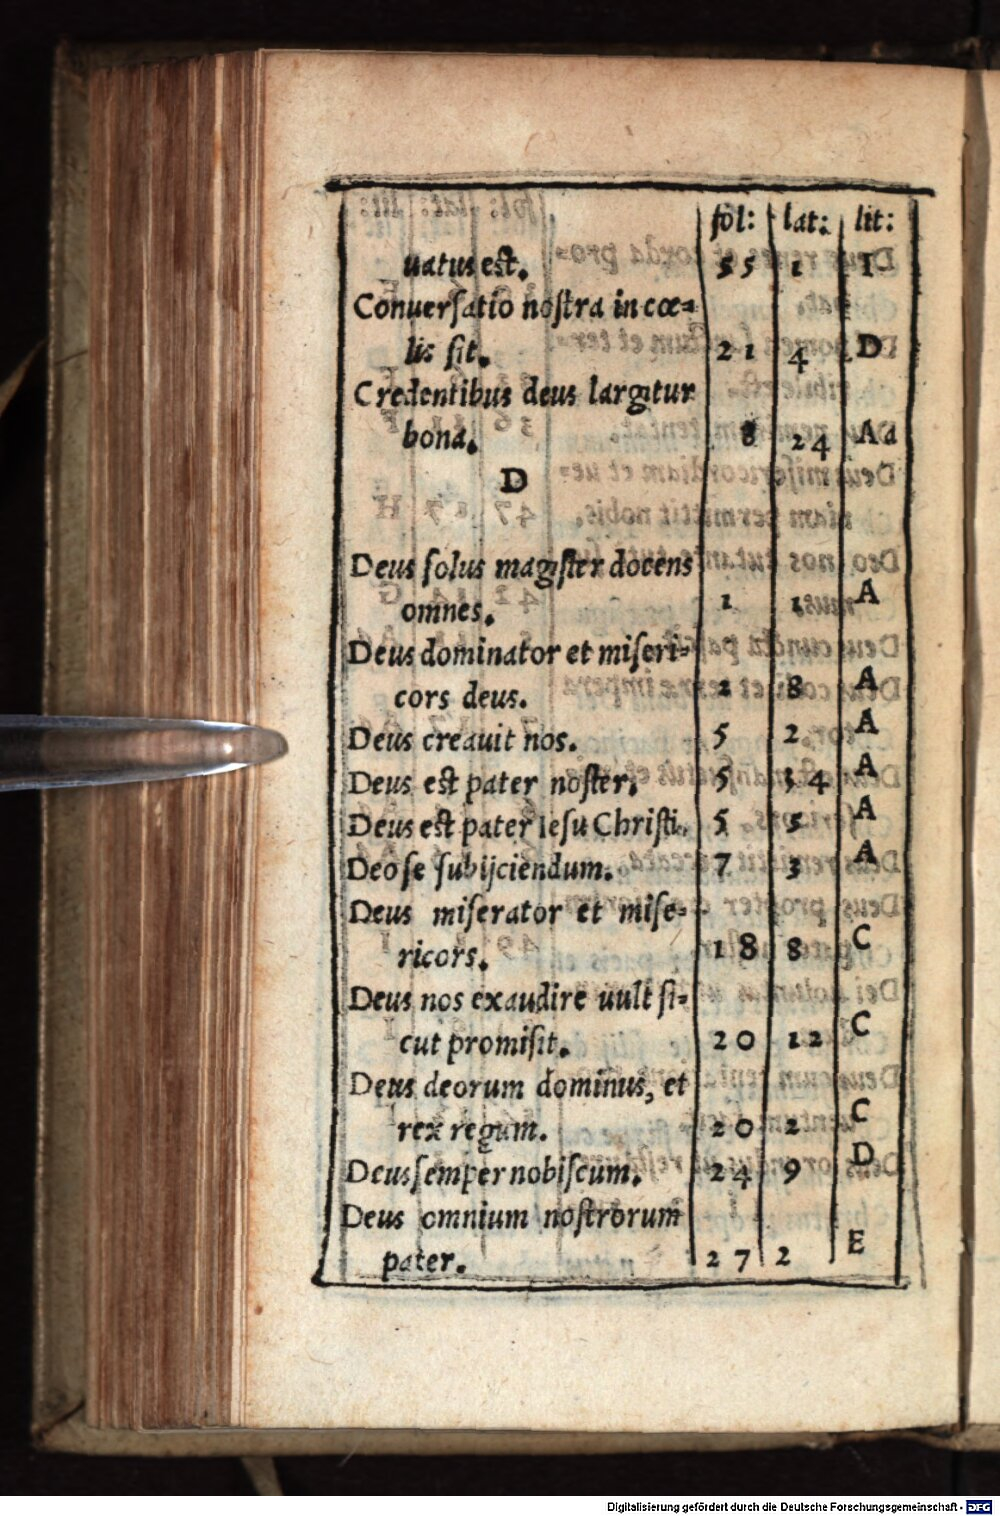 fol: lat: lit:
uatus est. 55 1 I
Conuerſatio noſtra in cœ=
lis ſit. 21 4 D
Credentibus deus largitur
bona. 8 24 Aa
D
Deus ſolus magiſter docens
omnes. 1 1 A
Deus dominator et miſeri=
cors deus. 2 8 A
Deus creauit nos. 5 2 A
Deus eſt pater noſter. 5 34 A
Deus eſt pater ieſu Chriſti. 5 5 A
Deo ſe ſubijciendum. 7 3 A
Deus miſerator et miſe=
ricors. 18 8 C
Deus nos exaudire uult ſi=
cut promiſit. 20 12 C
Deus deorum dominus, et
rex regum. 20 2 C
Deus ſemper nobiſcum. 24 9 D
Deus omnium noſtrorum
pater. 27 2 E
Digitalisierung gefördert durch die Deutsche Forschungsgemeinschaft - DFG